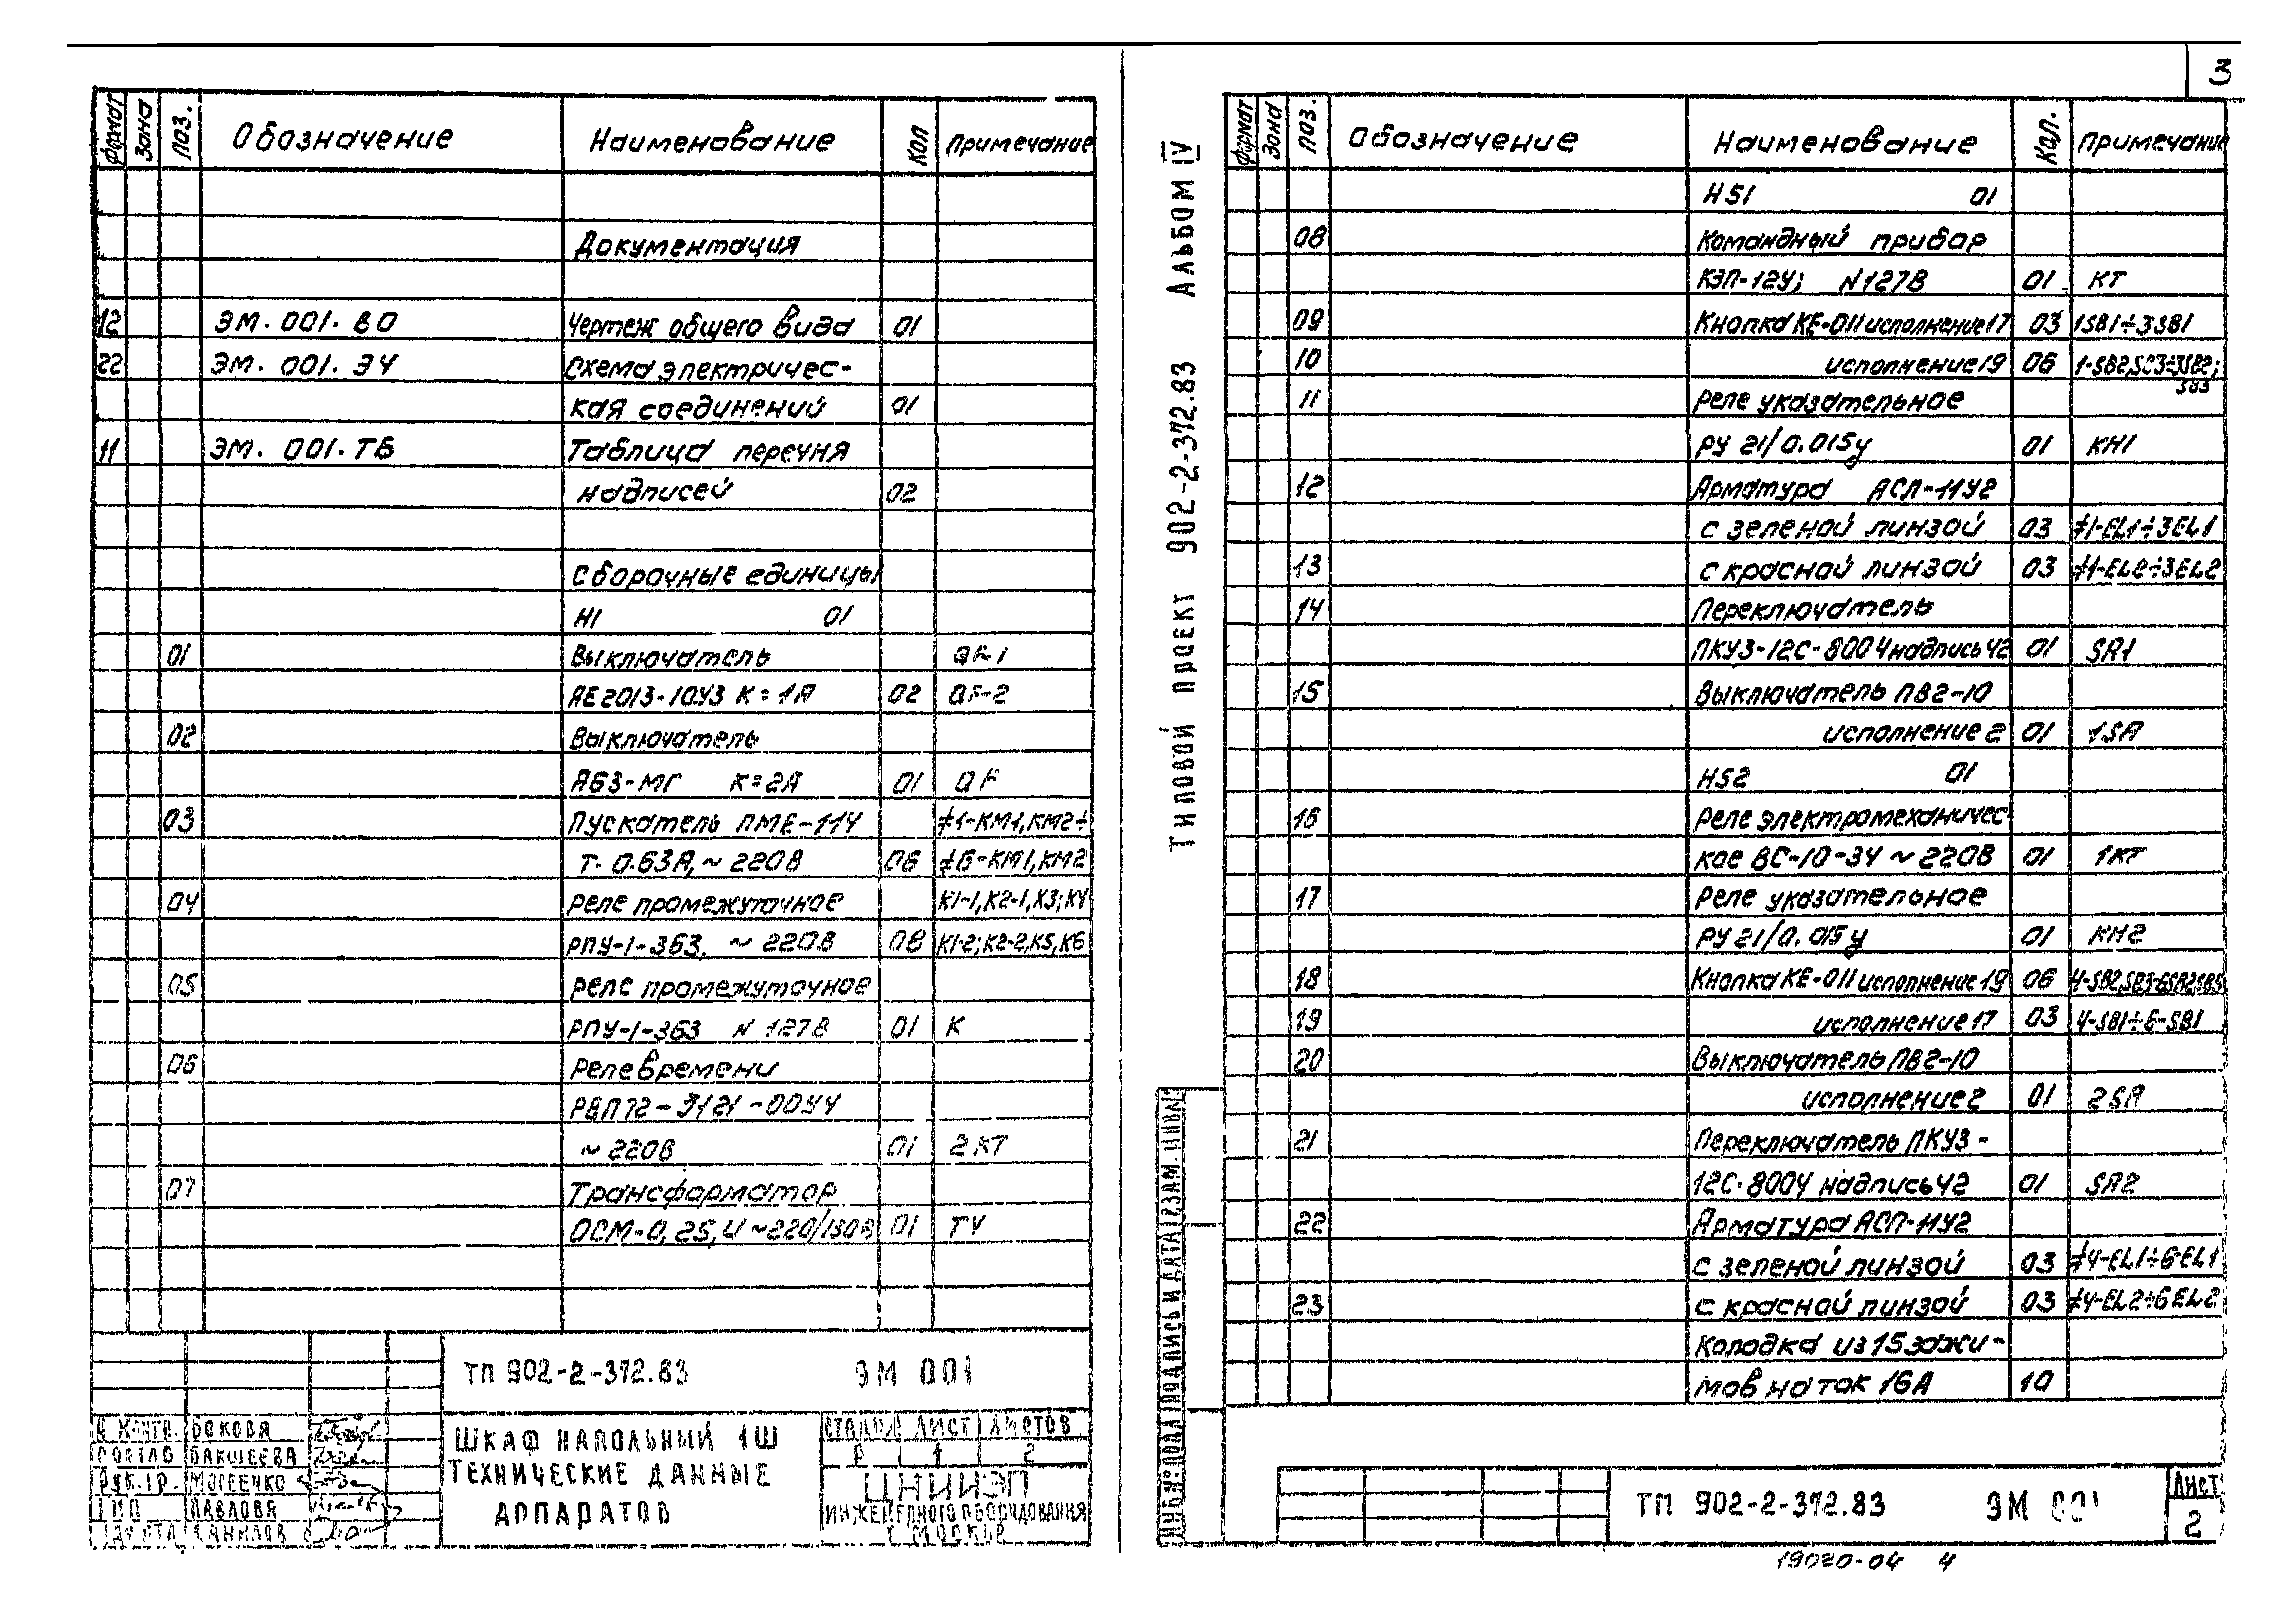 3
Формат Зона Поз. Обозначение Наименование Кол Примечание
Документация
12 ЭМ.001.ВО Чертеж общего вида 01
22 ЭМ.001.ЭЧ Схема электричес-
кая соединений 01
11 ЭМ.001.ТБ Таблица перечня
надписей 02
Сборочные единицы
Н1 01
01 Выключатель QF-1
АЕ2013-10У3 К=1А 02 QF-2
02 Выключатель
А63-МГ К=2А 01 QF
03 Пускатель ПМЕ-114 ≠1-КМ1, КМ2÷
Т. 0.63А, ~ 220В 06 ≠6-КМ1, КМ2
04 Реле промежуточное К1-1, К2-1, К3; К4
РПУ-1-363. ~ 220В 08 К1-2; К2-2, К5, К6
05 Реле промежуточное
РПУ-1-363 N 127В 01 К
06 Реле времени
РВП72-3121-00У4
~ 220В 01 2КТ
07 Трансформатор
ОСМ-0,25, И ~220/130В 01 TV
ТП 902-2-372.83 ЭМ 001
ШКАФ НАПОЛЬНЫЙ 1Ш
ТЕХНИЧЕСКИЕ ДАННЫЕ
АППАРАТОВ
СТАДИЯ ЛИСТ ЛИСТОВ
Р 1 2
ЦНИИЭП
ИНЖЕНЕРНОГО ОБОРУДОВАНИЯ
г. МОСКВА
Н. КОНТР.
СОСТАВ БАКШЕЕВА
РУК. ГР. МОСЕЕНКО
ГИП ПАВЛОВА
ДАНИЛОВ
Типовой проект 902-2-372.83 Альбом IV
Формат Зона Поз. Обозначение Наименование Кол. Примечание
Н51 01
08 Командный прибор
КЭП-12У; N127В 01 КТ
09 Кнопка КЕ-011 исполнение 17 03 1SB1÷3SB1
10 исполнение 19 06 1-SB2,SB3÷3SB2;
SB3
11 Реле указательное
РУ 21/0.015у 01 КН1
12 Арматура АСЛ-11У2
с зеленой линзой 03 ≠1-EL1÷3EL1
13 с красной линзой 03 ≠1-EL2÷3EL2
14 Переключатель
ПКУ3-12С-8004 надпись 42 01 SA1
15 Выключатель ПВ2-10
исполнение 2 01 1SA
Н52 01
16 Реле электромеханичес-
кое ВС-10-34 ~ 220В 01 1КТ
17 Реле указательное
РУ 21/0.015у 01 КН2
18 Кнопка КЕ-011 исполнение 19 06 4-SB2,SB3-6SB2,SB3
19 исполнение 17 03 4-SB1÷6-SB1
20 Выключатель ПВ2-10
исполнение 2 01 2SA
21 Переключатель ПКУ3-
12С-8004 надпись 42 01 SA2
22 Арматура АСЛ-11У2
с зеленой линзой 03 ≠4-EL1÷6-EL1
23 с красной линзой 03 ≠4-EL2÷6EL2
Колодка из 15 зажи-
мов на ток 16А 10
ИНВ.N°ПОДЛ ПОДПИСЬ И ДАТА ВЗАМ.ИНВ.N
ТП 902-2-372.83 ЭМ 001 Лист
2
19020-04 4